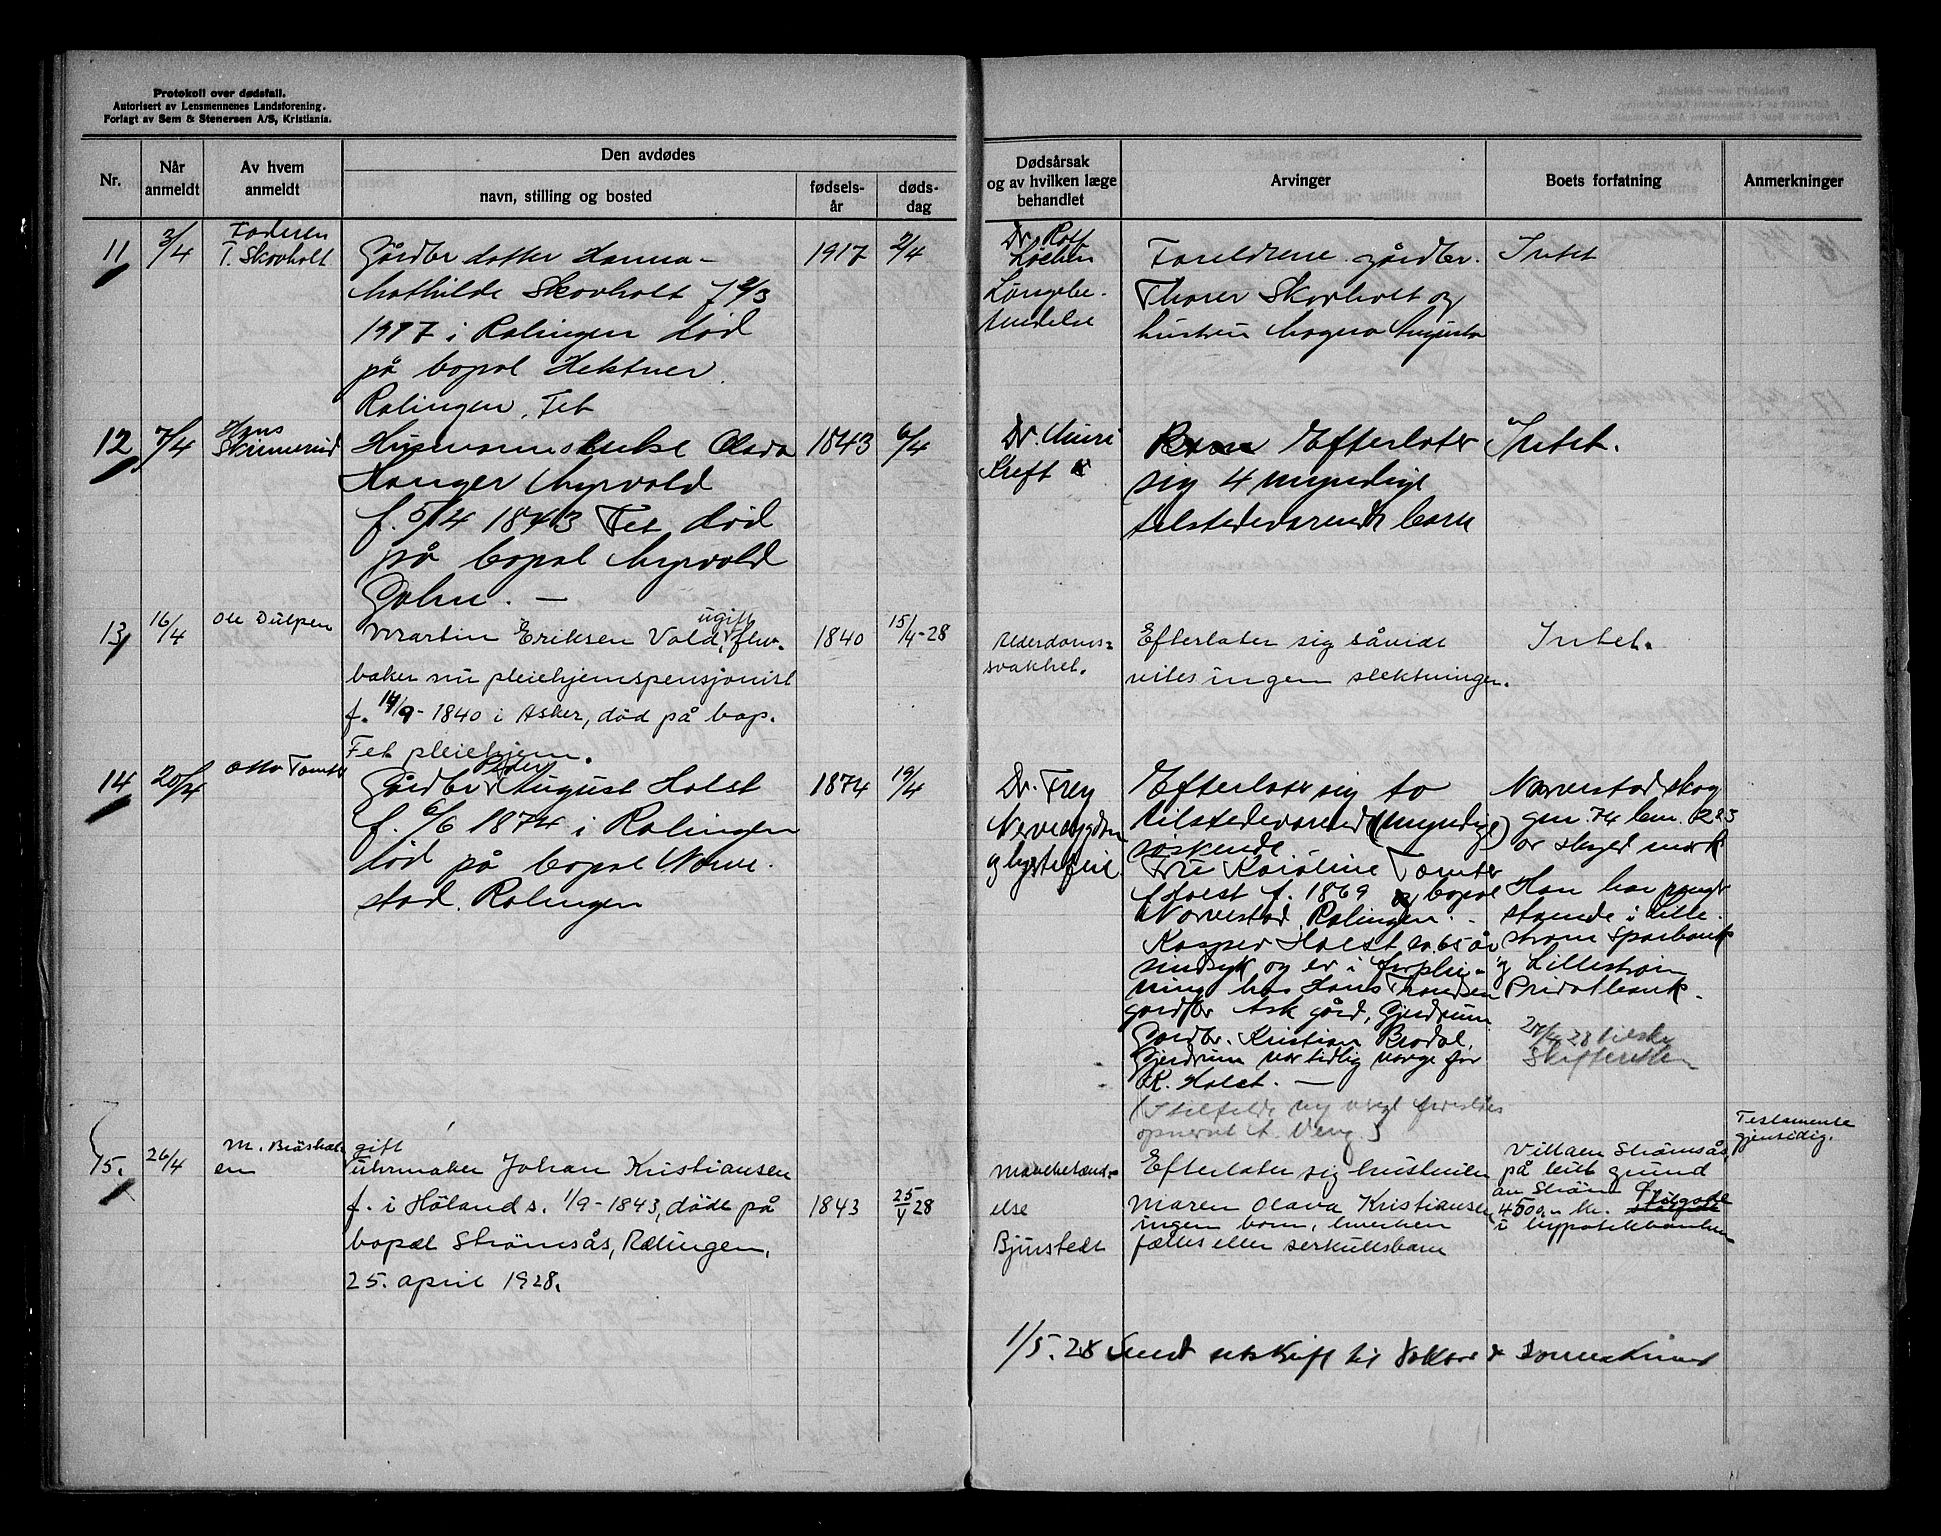 Protokoll over dødsfall.
Autorisert av Lensmennenes Landsforening.
Forlagt av Sem & Stenersen A/S, Kristiania.
Nr.
Når anmeldt
Av hvem anmeldt
Den avdødes
navn, stilling og bosted
fødsels-år
døds-dag
Dødsårsak og av hvilken læge behandlet
Arvinger
Boets forfatning
Anmerkninger
11
3/4
Faderen
T. Skovholt
Gårdbr datter Hanna
Mathilde Skovholt f
1917 i Rælingen død
på bopæl Hektner
Rælingen, Fet
1917
2/4
Dr. Rolf
Lungebe-
tendelse
Foreldrene gårdbr.
Thorer Skovholt og
hustru Magna Augusta
Intet
12
7/4
Hans
Husmannsenke
Myrvold
f. 5/4 1843 Fet, død
på bopæl Myrvold
1843
6/4
Dr.
Kreft
Efterlater
sig 4 myndige
tilstedeværende barn
Intet.
13
16/4
Ole Dulpen
Martin Eriksen Vold, ugift, fhv.
baker nu pleiehjemspensjonist
f. 14/9-1840 i Asker, død på bop.
Fet pleiehjem.
1840
15/4-28
Alderdoms=
svakhet.
Efterlater sig såvidt
vites ingen slektninger.
Intet.
14
20/4
Otto Tomter
Gårdbr Peder August Holst
f. 6/6 1874 i Rælingen
død på bopæl Norve-
stad, Rælingen
1874
19/4
Dr. Frey
Nervesygdom
Efterlater sig to
tilstedeværend (myndige)
søskende
Fru Karoline Tomter
f. Holst f. 1869 bopæl
Norvestad, Rælingen. -
Kasper Holst ca. 65 år
sindsyk og er i forplei-
ning hos Hans Trondsen
gårdbr Ask gård, Gjerdrum
Gårdbr. Kristian Brodal,
Gjerdrum var tidlig verge for
K. Holst. —
Norvestad skog
gnr. 74 bnr. 223
av skyld mark
Han har penge
stående i Lille-
strøm Sparbank
og Lillestrøm
Privatbank.
Skifteretten
15.
26/4
M. Bråthe
en
gift
Uhrmaker Johan Kristiansen
f. i Høland s. 1/9-1843, døde på
bopæl Strømsås, Rælingen,
25. april 1928.
1843
25/4 28
Mavebetænd-
else
Bjurstedt
Efterlater sig hustruen
Maren Olava Kristiansen
ingen barn, hverken
fælles eller serkullsbarn
Villaen Strømsås,
på leiet grund
av Strøm
4500,- kr.
i hypotekbanken
Testamente
gjensidig.
1/5. 28 Send utskrift til